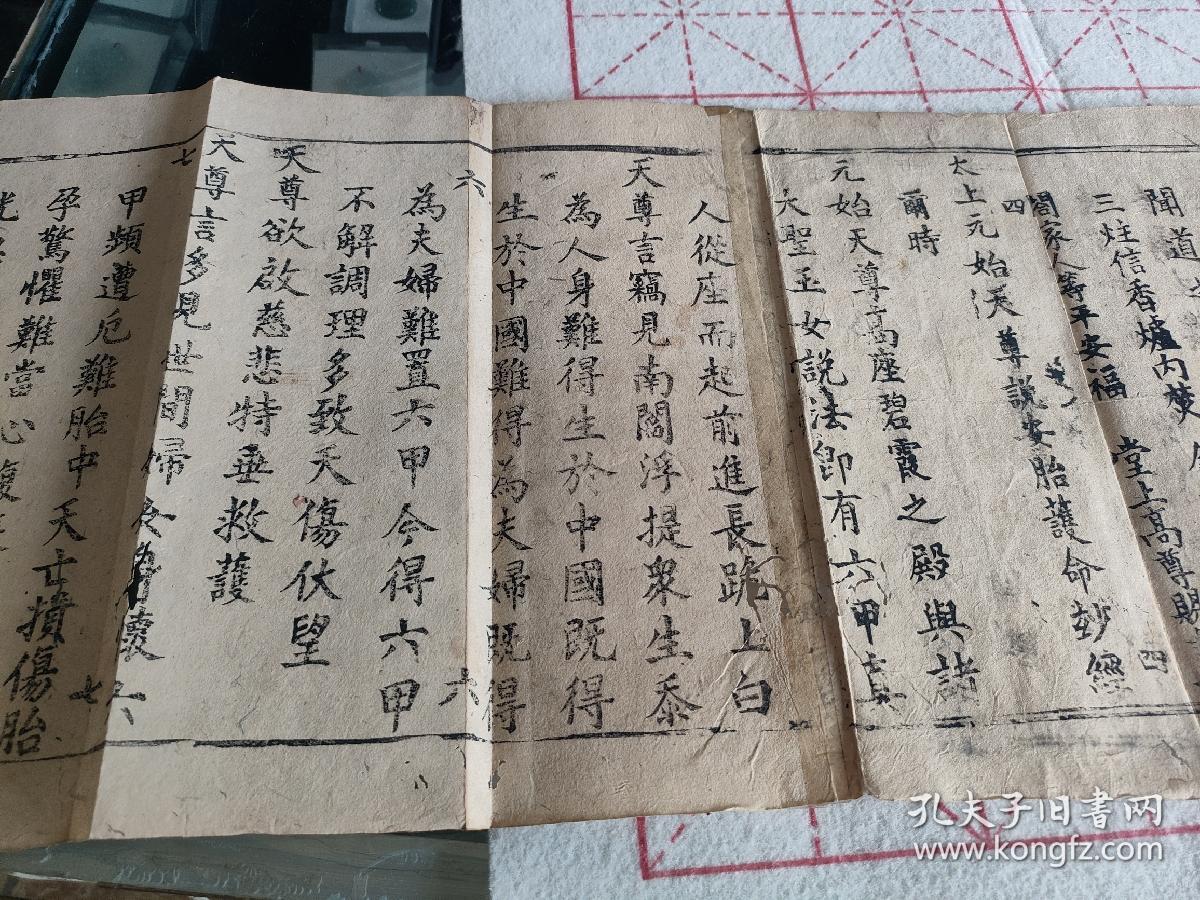 聞道
三炷信香爐內焚 堂上高尊賜
閤家人等平安福
四 四
太上元始天尊說安胎護命妙經
爾時
元始天尊高座碧霞之殿與諸
大聖玉女說法卽有六甲真
人從座而起前進長跪上白
天尊言竊見南閻浮提衆生忝
為人身難得生於中國既得
生於中國難得為夫婦既得
六 六
為夫婦難置六甲今得六甲
不解調理多致夭傷伏望
天尊欲啟慈悲特垂救護
天尊言多見世間婦人懷六
七 七
甲頻遭厄難胎中夭亡損傷胎
孕驚懼難當心腹
孔夫子旧书网
www.kongfz.com